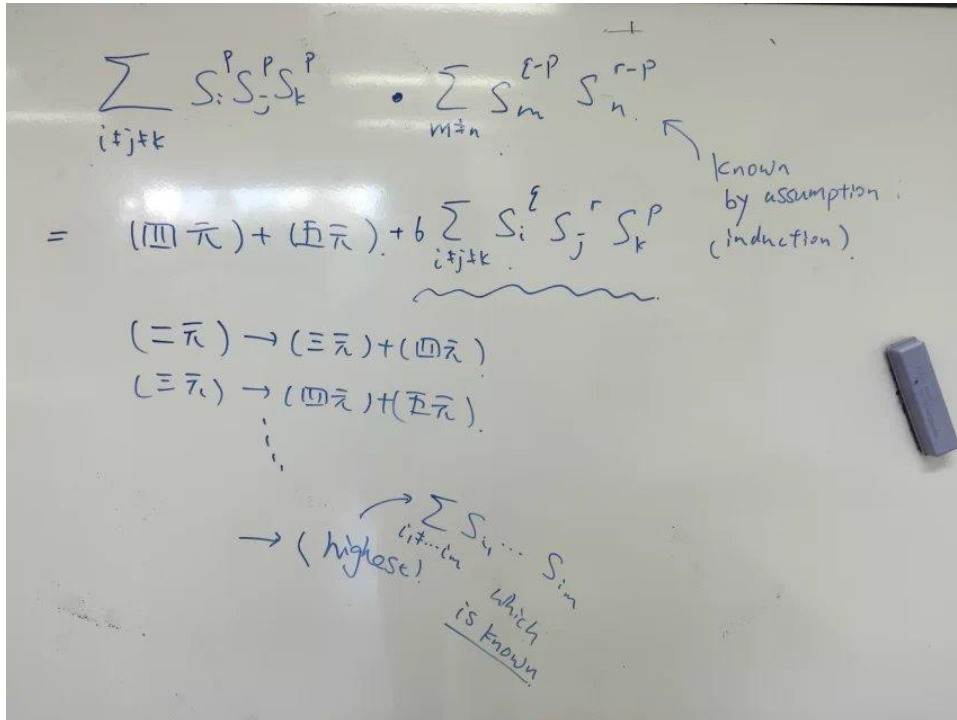 ∑_{i≠j≠k} S_i^p S_j^p S_k^p · ∑_{m≠n} S_m^{q-p} S_n^{r-p}
known
by assumption.
(induction).
= (四元)+(五元)+6∑_{i≠j≠k} S_i^q S_j^r S_k^p
(二元)→(三元)+(四元)
(三元)→(四元)+(五元).
→(highest) ∑_{i_1≠...i_m} S_{i_1}... S_{i_m}
which
is known.